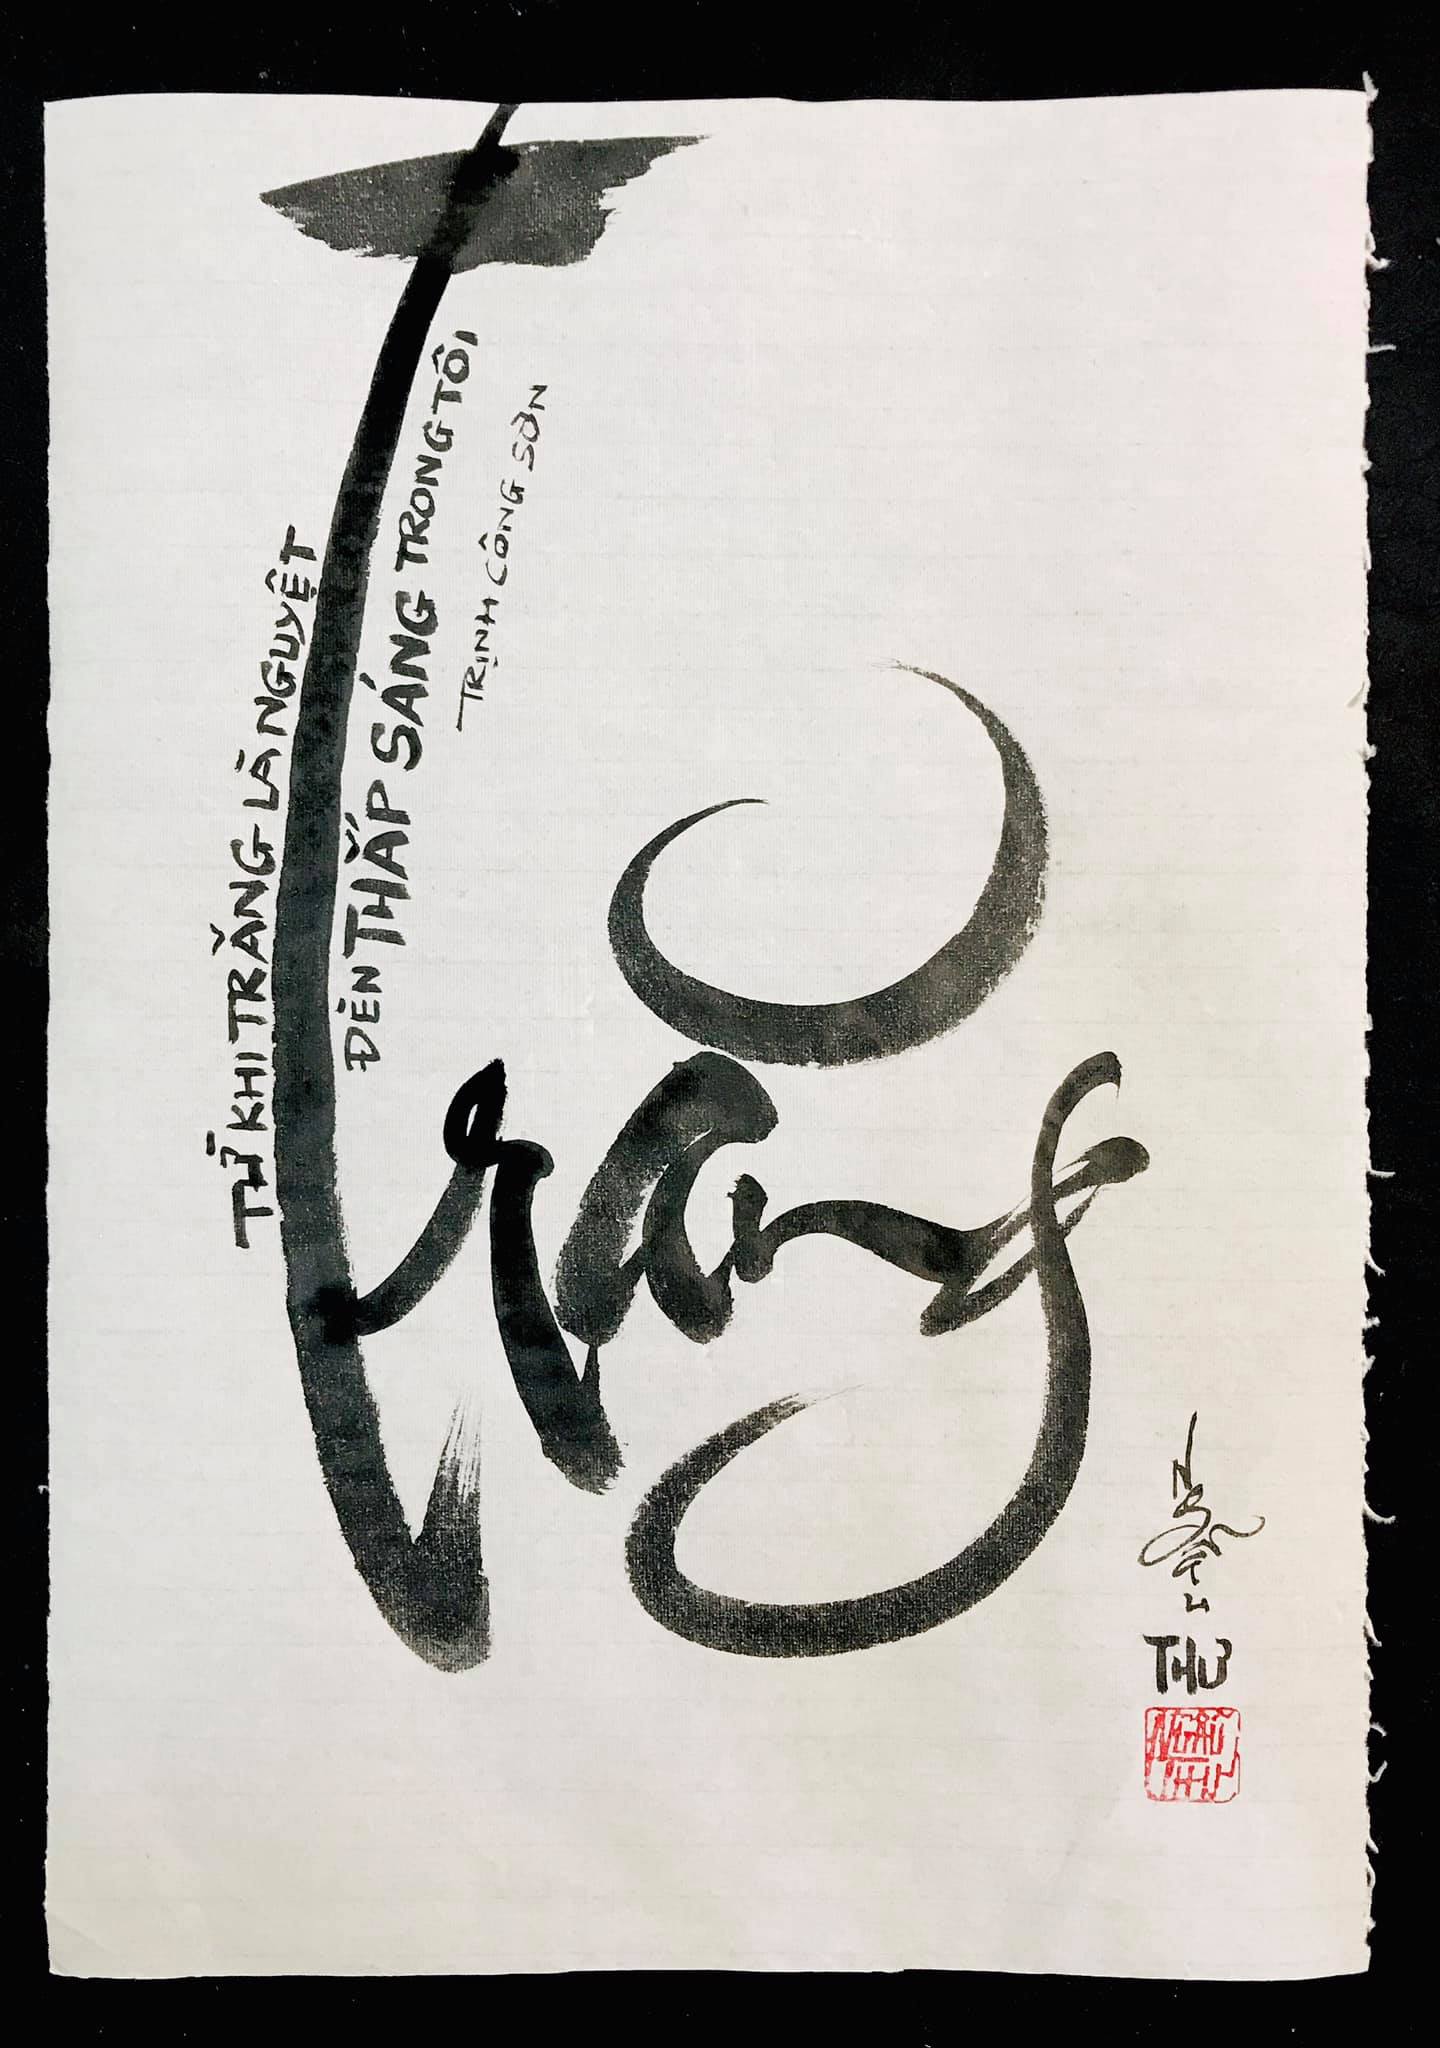 TỪ KHI TRĂNG LÀ NGUYỆT
ĐÈN THẮP SÁNG TRONG TÔI
TRỊNH CÔNG SƠN
Trăng
THƯ